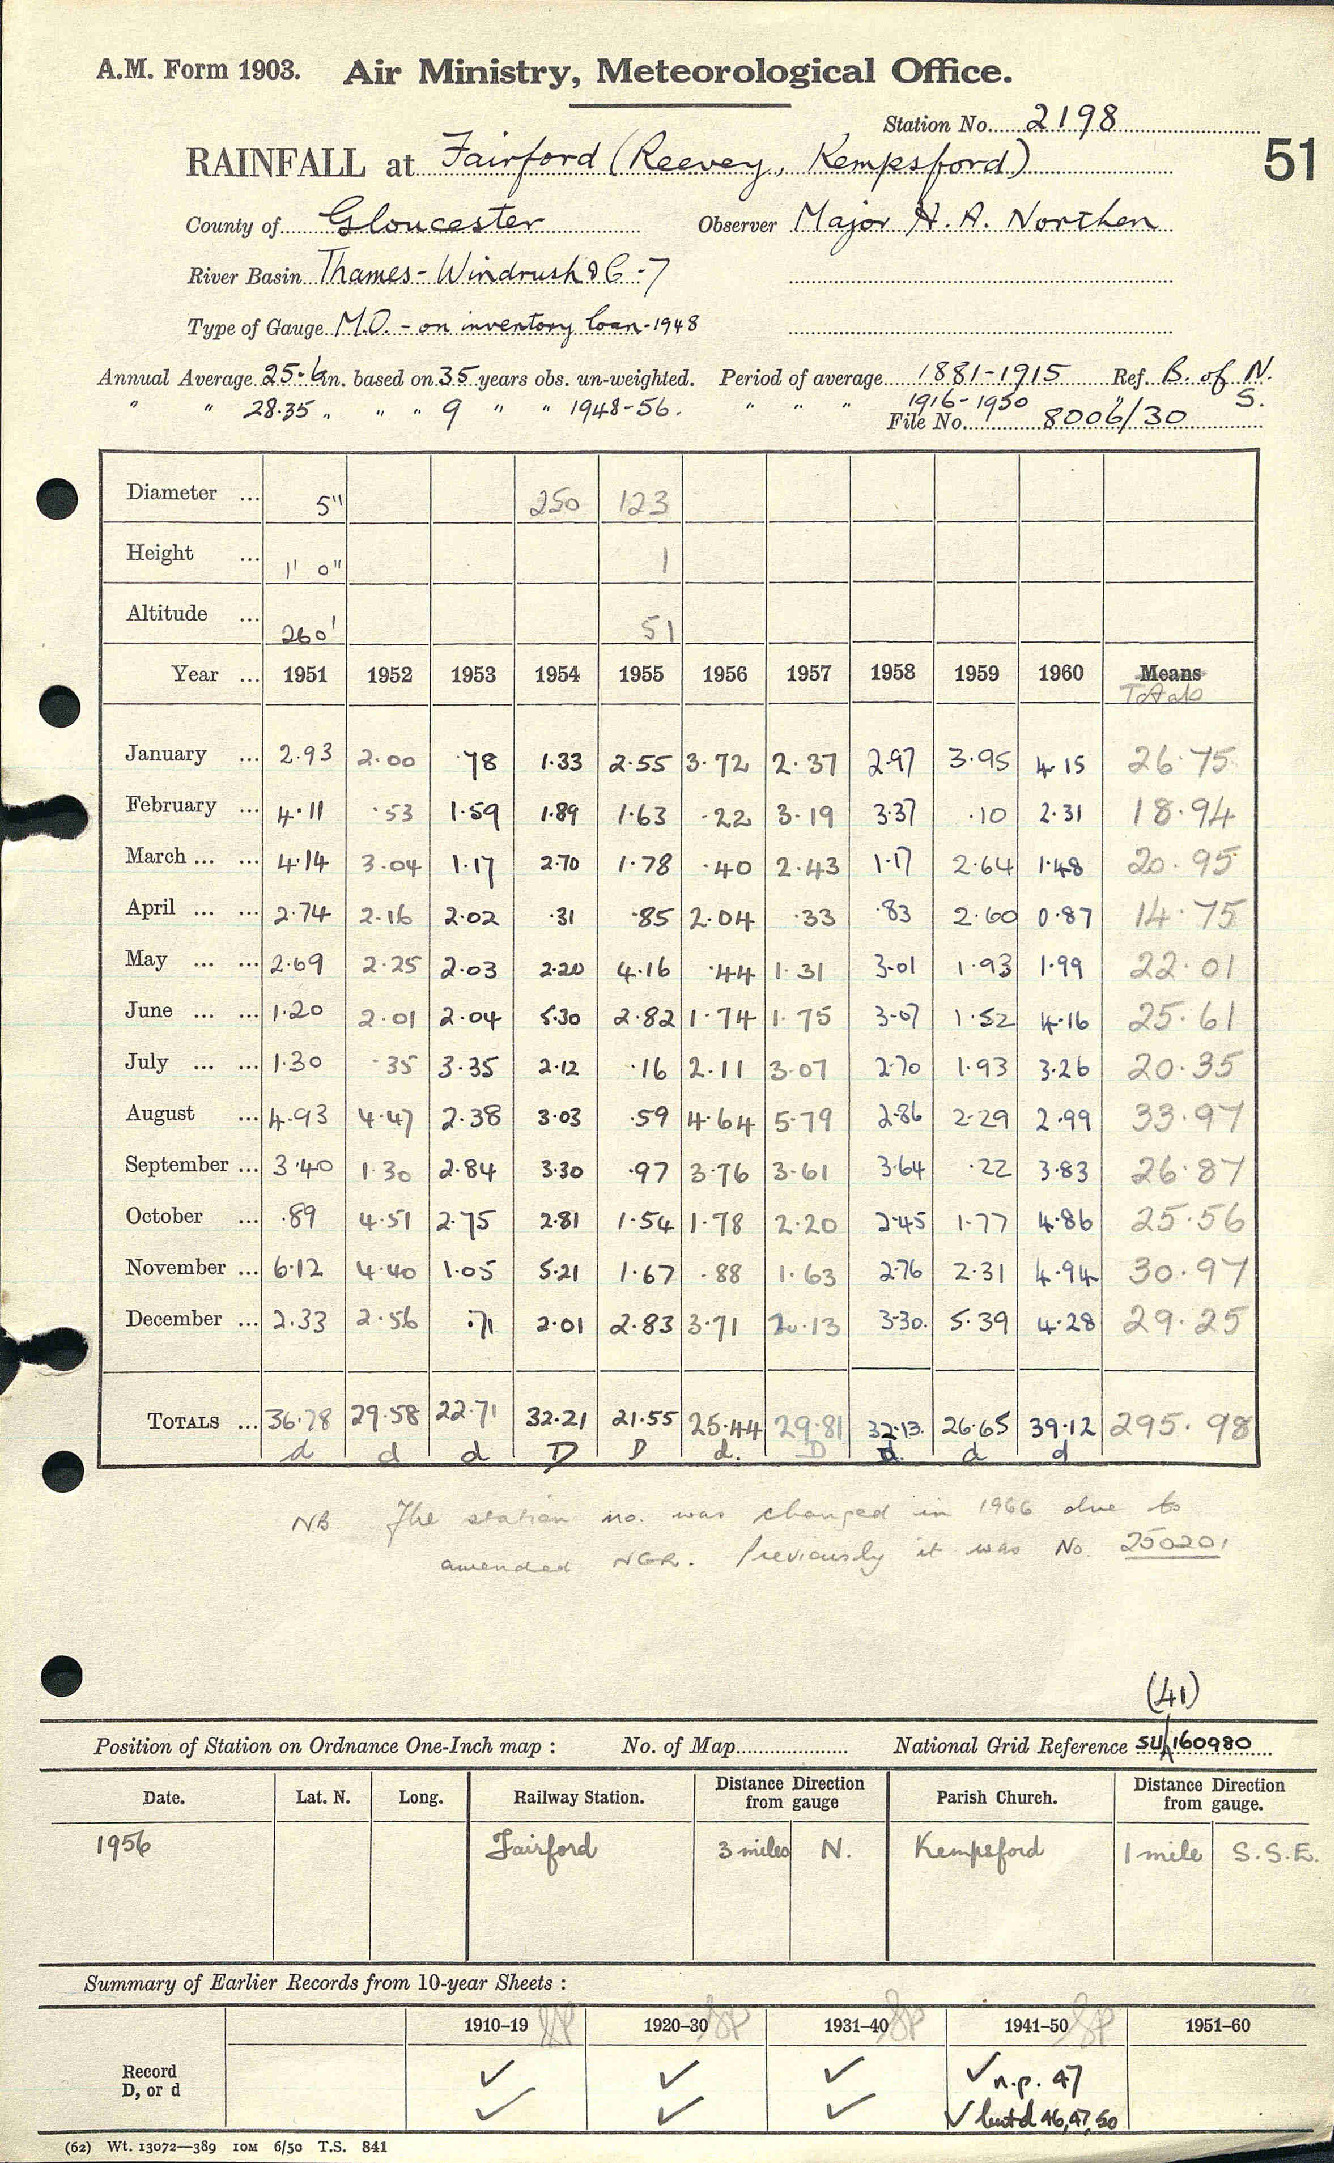 A.M. Form 1903. Air Ministry, Meteorological Office.
Station No. 2198
51
RAINFALL at Fairford (Reevey, Kempsford)
County of Gloucester Observer Major H. A. Northen
River Basin Thames - Windrush & C - 7
Type of Gauge M.O. - on inventory loan - 1948
Annual Average 25.6 in. based on 35 years obs. un-weighted. Period of average 1881-1915 Ref. B. of N.
" " 28.35 " " " 9 " " 1948-56. " " " 1916-1950 " S.
File No. 8006/30
Diameter ... 5" 250 123
Height ... 1' 0" 1
Altitude ... 260' 51
Year ... 1951 1952 1953 1954 1955 1956 1957 1958 1959 1960 Means
Totals
January ... 2.93 2.00 .78 1.33 2.55 3.72 2.37 2.97 3.95 4.15 26.75
February ... 4.11 .53 1.59 1.89 1.63 .22 3.19 3.37 .10 2.31 18.94
March ... ... 4.14 3.04 1.17 2.70 1.78 .40 2.43 1.17 2.64 1.48 20.95
April ... ... 2.74 2.16 2.02 .31 .85 2.04 .33 .83 2.60 0.87 14.75
May ... ... 2.69 2.25 2.03 2.20 4.16 .44 1.31 3.01 1.93 1.99 22.01
June ... ... 1.20 2.01 2.04 5.30 2.82 1.74 1.75 3.07 1.52 4.16 25.61
July ... ... 1.30 .35 3.35 2.12 .16 2.11 3.07 2.70 1.93 3.26 20.35
August ... 4.93 4.47 2.38 3.03 .59 4.64 5.79 2.86 2.29 2.99 33.97
September ... 3.40 1.30 2.84 3.30 .97 3.76 3.61 3.64 .22 3.83 26.87
October ... .89 4.51 2.75 2.81 1.54 1.78 2.20 2.45 1.77 4.86 25.56
November ... 6.12 4.40 1.05 5.21 1.67 .88 1.63 2.76 2.31 4.94 30.97
December ... 2.33 2.56 .71 2.01 2.83 3.71 2.13 3.30. 5.39 4.28 29.25
TOTALS ... 36.78 29.58 22.71 32.21 21.55 25.44 29.81 32.13. 26.65 39.12 295.98
d d d D D d. D d. d d
NB The station no. was changed in 1966 due to
amended NGR. Previously it was No. 250201
(41)
Position of Station on Ordnance One-Inch map : No. of Map National Grid Reference SU/160980
Date. Lat. N. Long. Railway Station. Distance from gauge Direction Parish Church. Distance from gauge. Direction
1956 Fairford 3 miles N. Kempsford 1 mile S.S.E.
Summary of Earlier Records from 10-year Sheets :
1910–19 1920–30 1931–40 1941–50 1951–60
Record ✓ ✓ ✓ ✓ n.p. 47
D, or d ✓ ✓ ✓ ✓ but d 46, 47, 50
(62) Wt. 13072—389 IOM 6/50 T.S. 841